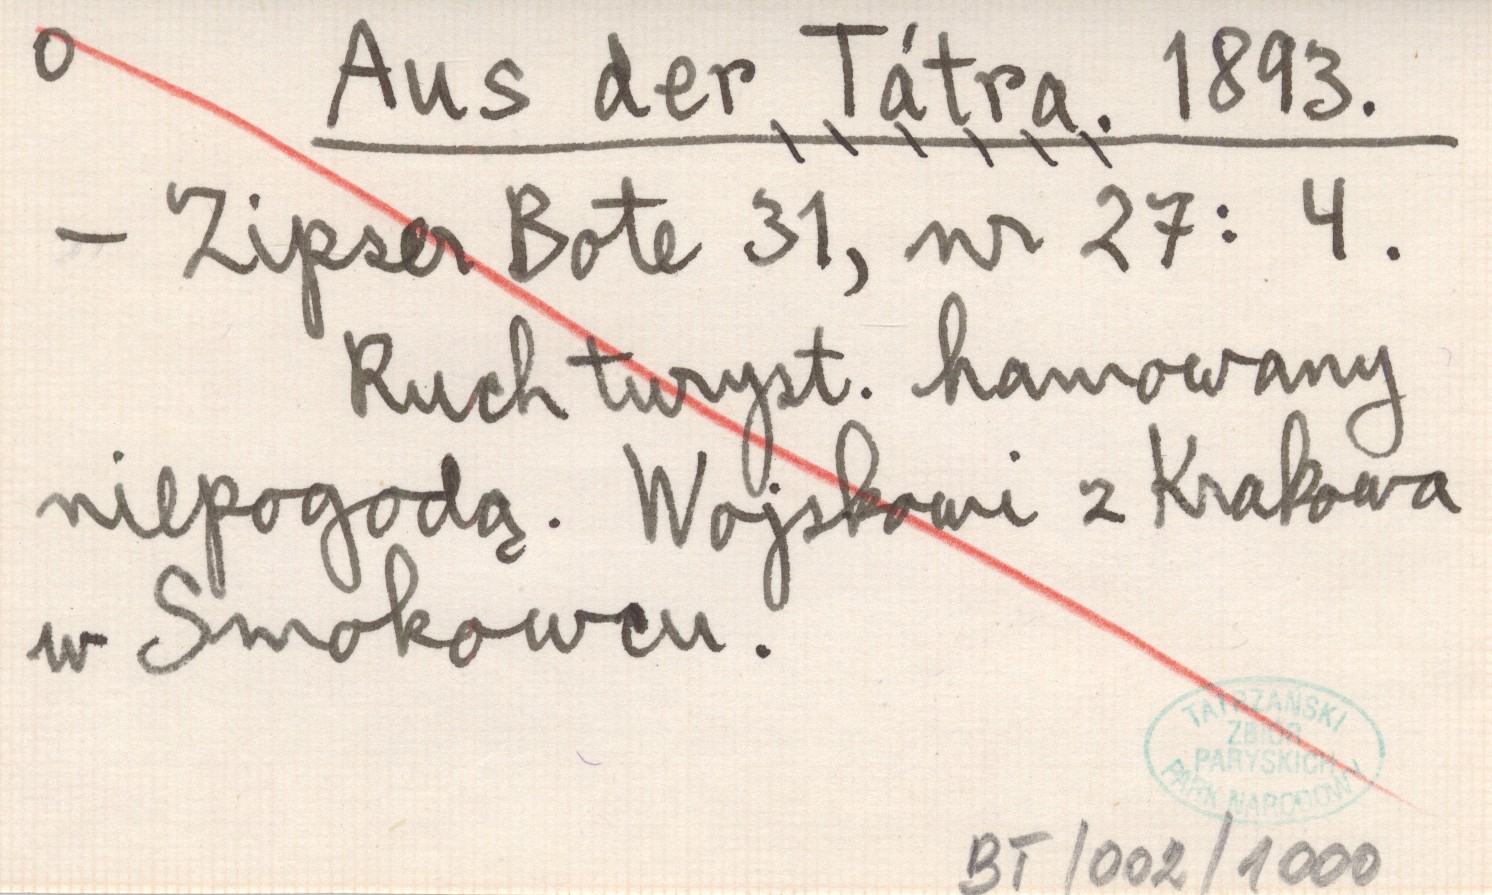 o Aus der Tátra. 1893.
– Zipser Bote 31, nr 27: 4.
Ruch turyst. hamowany
niepogodą. Wojskowi z Krakowa
w Smokowcu.
TATRZAŃSKI
ZBIÓR
PARYSKICH
PARK NARODOWY
BT/002/1000